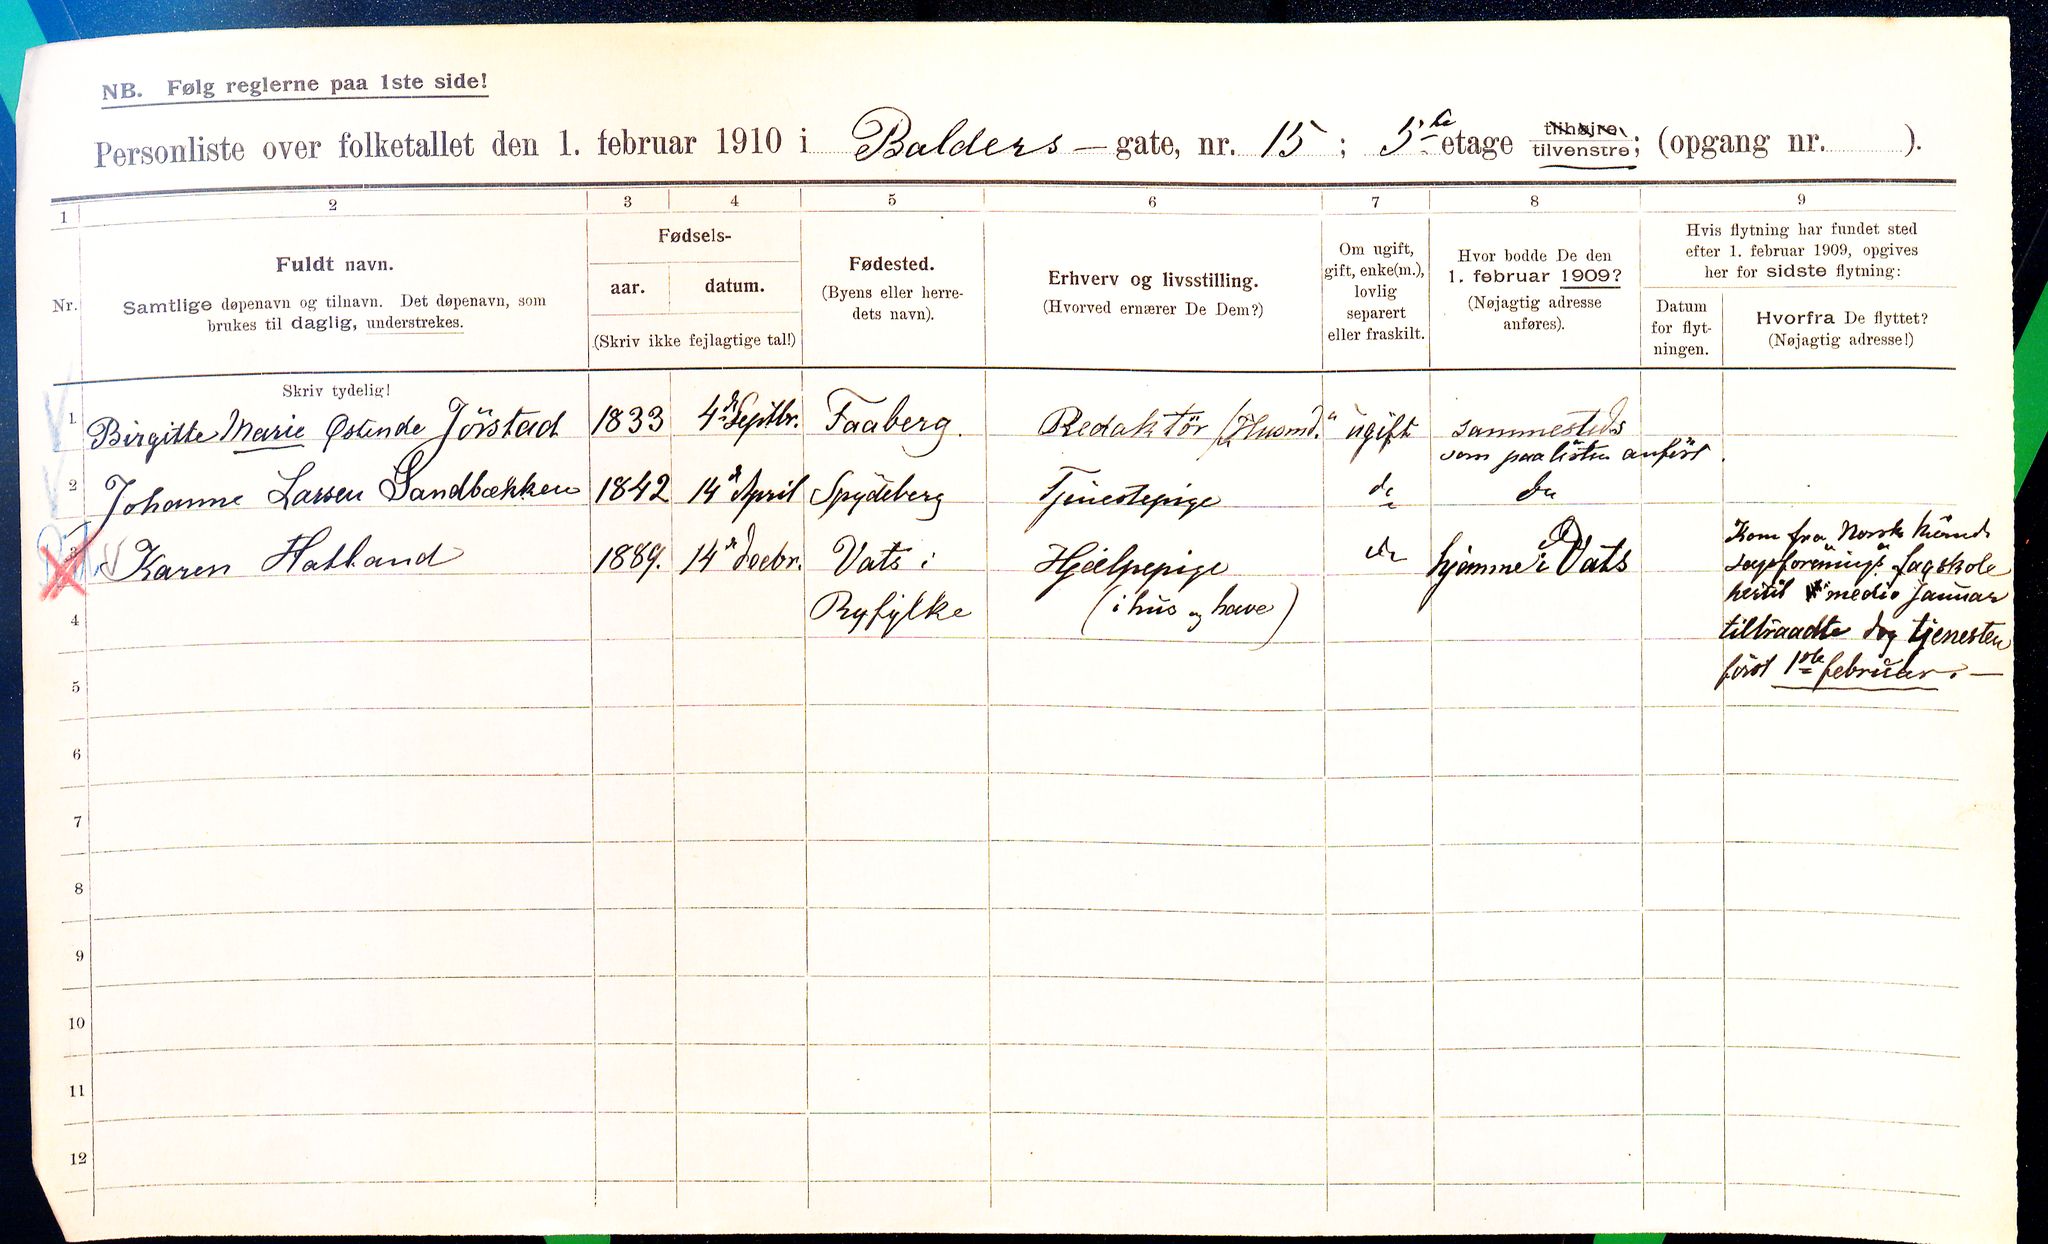 NB. Følg reglerne paa 1ste side!
Personliste over folketallet den 1. februar 1910 i Balders-gate, nr. 15; 5te etage tilhøire tilvenstre; (opgang nr. ).
1 2 3 4 5 6 7 8 9
Nr.
Fuldt navn.
Samtlige døpenavn og tilnavn. Det døpenavn, som
brukes til daglig, understrekes.
Skriv tydelig!
Fødsels-
aar. datum.
(Skriv ikke fejlagtige tal!)
Fødested.
(Byens eller herre-
dets navn).
Erhverv og livsstilling.
(Hvorved ernærer De Dem?)
Om ugift,
gift, enke(m.),
lovlig
separert
eller fraskilt.
Hvor bodde De den
1. februar 1909?
(Nøjagtig adresse
anføres).
Hvis flytning har fundet sted
efter 1. februar 1909, opgives
her for sidste flytning:
Datum
for flyt-
ningen.
Hvorfra De flyttet?
(Nøjagtig adresse!)
1 Birgitte Marie Østende Jörstad 1833 4de Septbr. Faaberg. Redaktör (Husmd." ugift sammesteds
som paa listen anfört.
2 Johanne Larsen Sandbækken 1842 14de April Spydeberg Tjenestepige do do
3 Karen Hatland 1889. 14de decbr. Vats i Hjælpepige do hjemme i Vats
4 Ryfylke (i hus og have)
Kom fra Norsk Kvinde
sagsforenings fagskole
hertil medio Januar
tiltraadte dog tjenesten
först 1ste februar. —
5
6
7
8
9
10
11
12